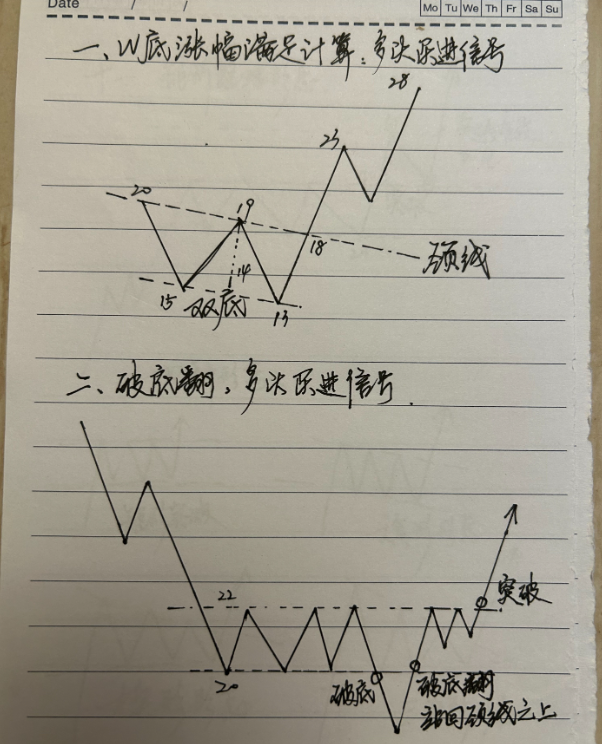 Date
Mo Tu We Th Fr Sa Su
一、W底涨幅满足计算,多次买进信号
28
23
20
19
18
颈线
14
15 双底
13
二、破底翻,多次买进信号.
22
突破
20
破底
破底翻
站回颈线之上